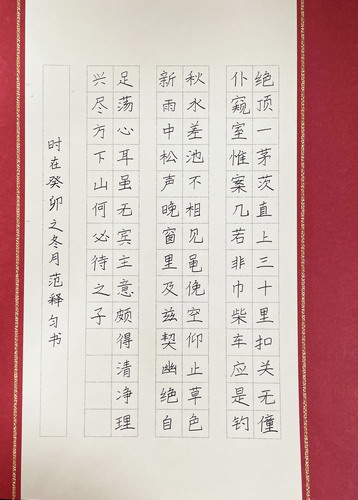 绝顶一茅茨直上三十里扣关无僮
仆窥室惟案几若非巾柴车应是钓
秋水差池不相见黾俛空仰止草色
新雨中松声晚窗里及兹契幽绝自
足荡心耳虽无宾主意颇得清净理
兴尽方下山何必待之子
时在癸卯之冬月范释匀书